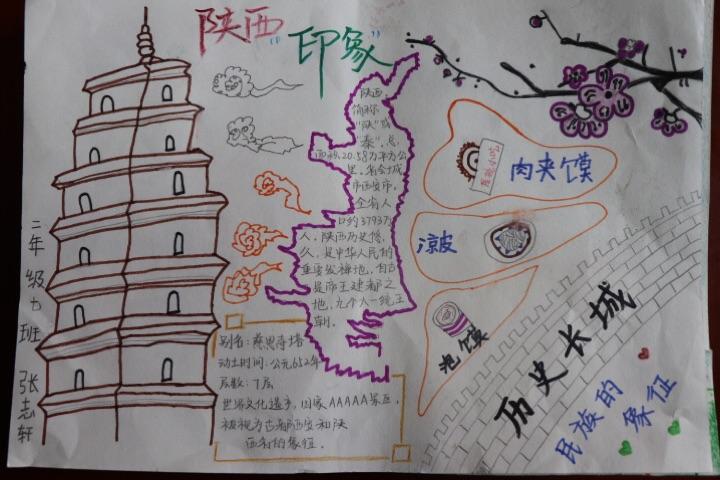 陕西“印象”
陕西，
简称
“陕”或
“秦”，总
面积20.58万平方公
里。省会城
市西安市，
全省人
口约3793万
人，陕西历史悠
久，是中华人民的
重要发祥地，自古
是帝王建都之
地，九个大一统王
朝。
肉夹馍
凉皮
泡馍
别名：慈恩寺塔
动土时间：公元652年
层数：7层
世界文化遗产，国家AAAAA景区，
被视为古都西安和陕
西省的象征。
历史长城
民族的
象征
二年级七班 张志轩